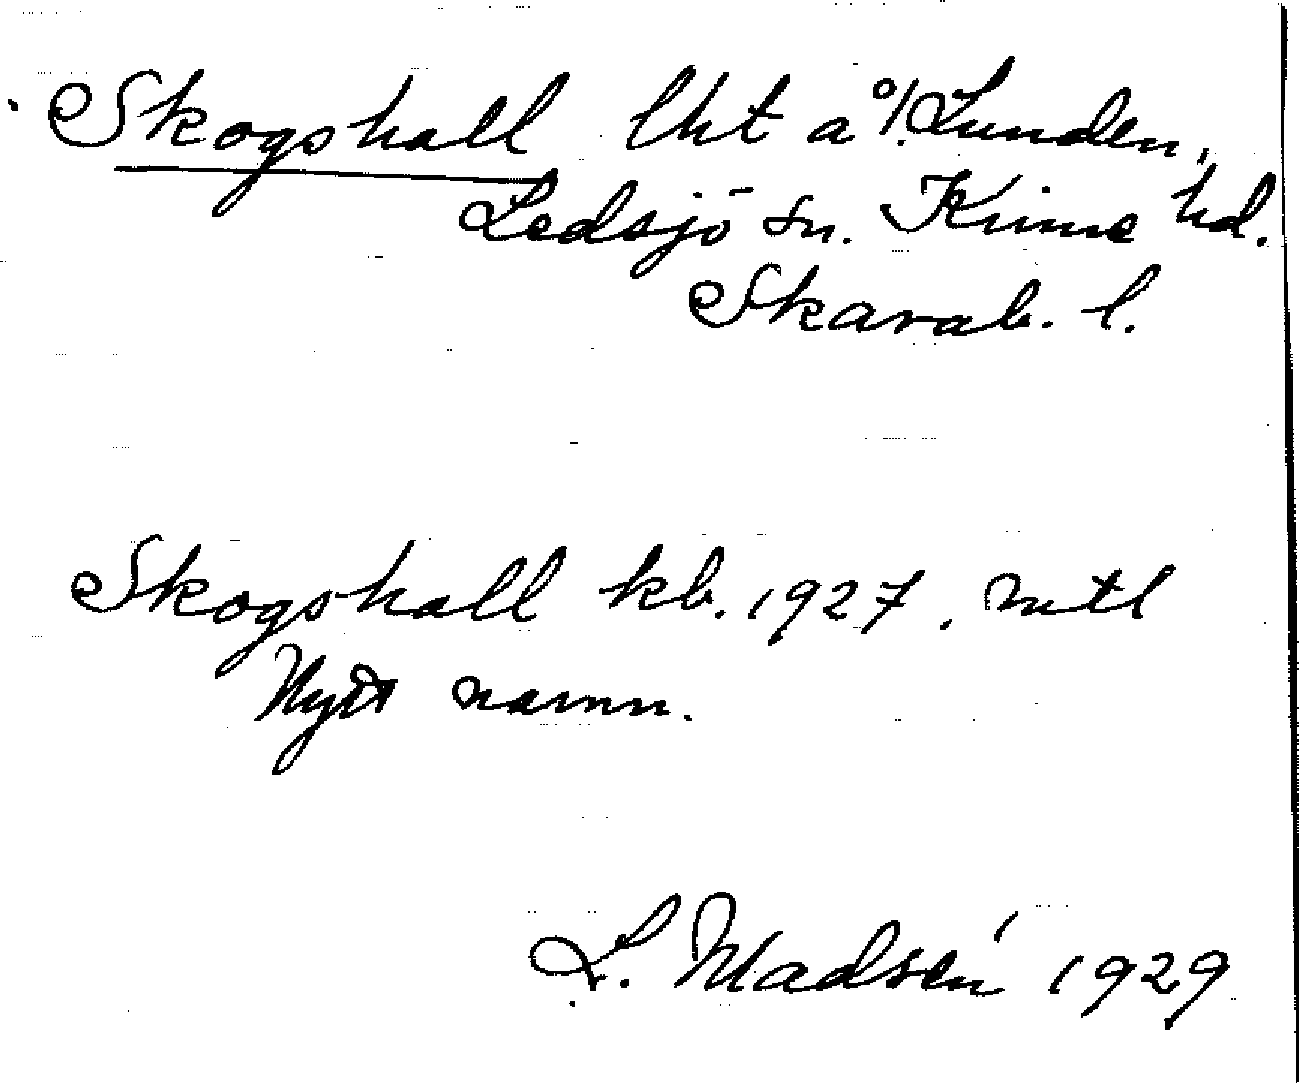 Skogshall lht a º/. Lunden,
Ledsjö sn. Kinne hd.
Skarab. l.
Skogshall kb. 1927, mtl
Nytt namn.
L. Madsén 1929